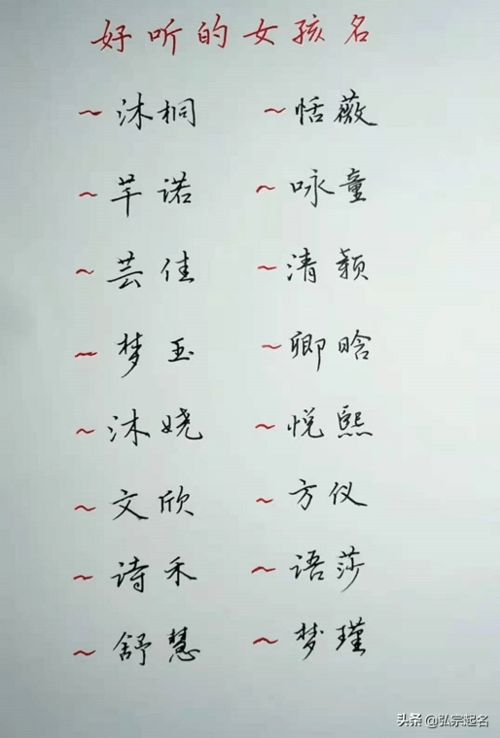 好听的女孩名
~沐桐 ~恬薇
~芊诺 ~咏童
~芸佳 ~清颖
~梦玉 ~卿晗
~沐娆 ~悦熙
~文欣 ~方仪
~诗禾 ~语莎
~舒慧 ~梦瑾
头条 @弘宗起名